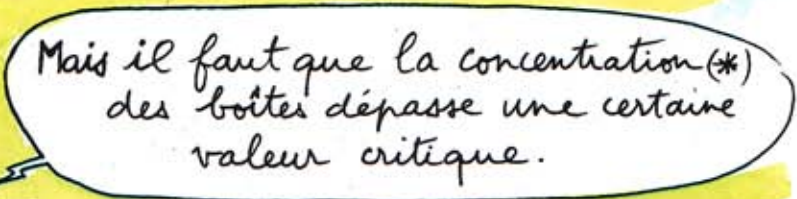 Mais il faut que la concentration (*)
des boîtes dépasse une certaine
valeur critique.